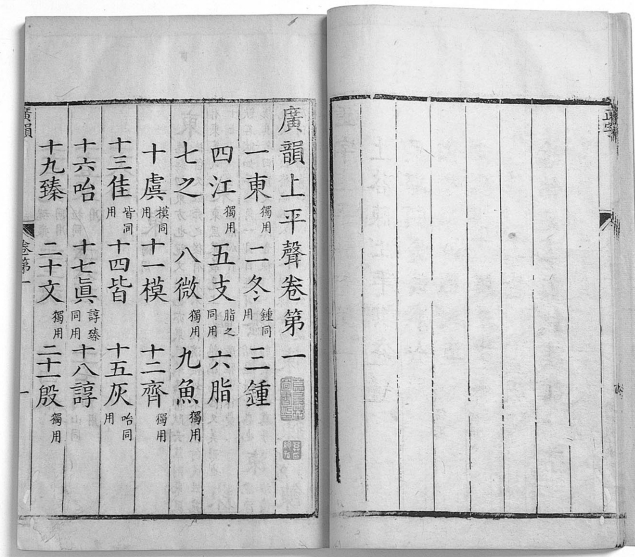 廣韻上平聲卷第一
一東獨用 二冬鍾同用 三鍾
四江獨用 五支脂之同用 六脂
七之 八微獨用 九魚獨用
十虞模同用 十一模 十二齊獨用
十三佳皆同用 十四皆 十五灰咍同用
十六咍 十七眞諄臻同用 十八諄
十九臻 二十文獨用 二十一殷獨用
廣韻 卷第一 一